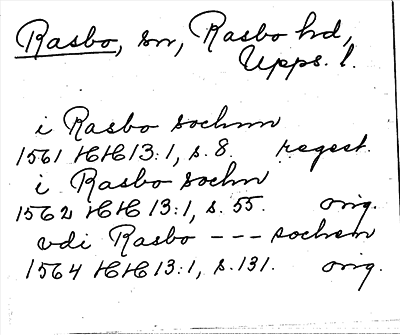 Rasbo, sn, Rasbo hd,
Upps. l.
i Rasbo sochnn
1561 HH 13:1, s. 8. regest.
i Rasbo sochn
1562 HH 13:1, s. 55. orig.
vdi Rasbo --- sochen
1564 HH 13:1, s. 131. orig.